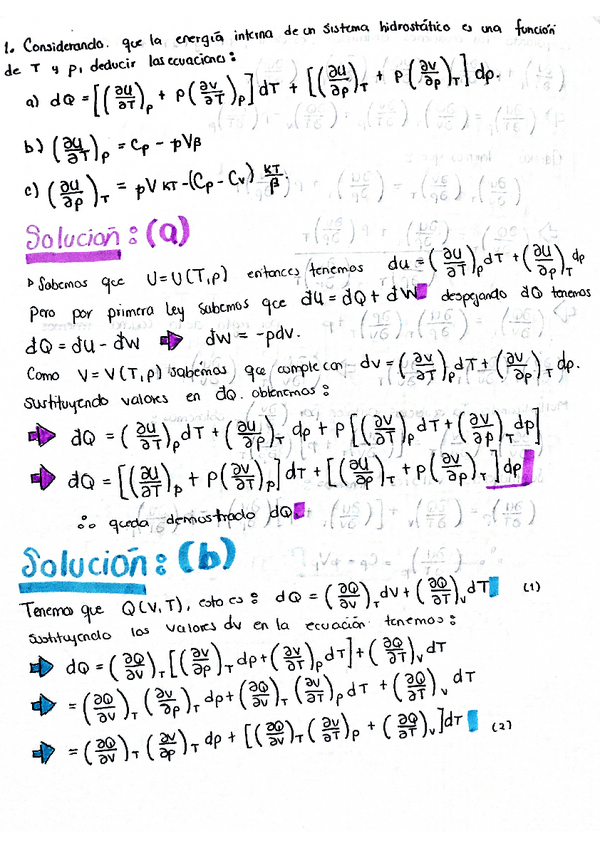 1. Considerando. que la energía interna de un sistema hidrostático es una función
de T y p, deducir las ecuaciones:
a) đQ = [(∂U/∂T)_p + p(∂V/∂T)_p] dT + [(∂U/∂p)_T + p(∂V/∂p)_T] dp.
b) (∂U/∂T)_p = Cp - pVβ
c) (∂U/∂p)_T = pV κT - (Cp - Cv) κT/β.
Solución: (a)
▹ Sabemos que U=U(T,p) entonces tenemos du = (∂U/∂T)_p dT + (∂U/∂p)_T dp
Pero por primera ley sabemos que đU = đQ + đW despejando đQ tenemos
đQ = đU - đW ⇒ đW = -pdv.
Como V=V(T,p) sabemos que cumple con dv = (∂V/∂T)_p dT + (∂V/∂p)_T dp.
Sustituyendo valores en đQ. obtenemos:
⇒ đQ = (∂U/∂T)_p dT + (∂U/∂p)_T dp + p [(∂V/∂T)_p dT + (∂V/∂p)_T dp]
⇒ đQ = [(∂U/∂T)_p + p(∂V/∂T)_p] dT + [(∂U/∂p)_T + p(∂V/∂p)_T] dp
∴ queda demostrado đQ.
Solución: (b)
Tenemo que Q(V,T), esto es: đQ = (∂Q/∂V)_T dv + (∂Q/∂T)_V dT (1)
Sustituyendo los valores dv en la ecuación tenemos:
⇒ đQ = (∂Q/∂V)_T [(∂V/∂p)_T dp + (∂V/∂T)_p dT] + (∂Q/∂T)_V dT
⇒ = (∂Q/∂V)_T (∂V/∂p)_T dp + (∂Q/∂V)_T (∂V/∂T)_p dT + (∂Q/∂T)_V dT
⇒ = (∂Q/∂V)_T (∂V/∂p)_T dp + [(∂Q/∂V)_T (∂V/∂T)_p + (∂Q/∂T)_V] dT (2)